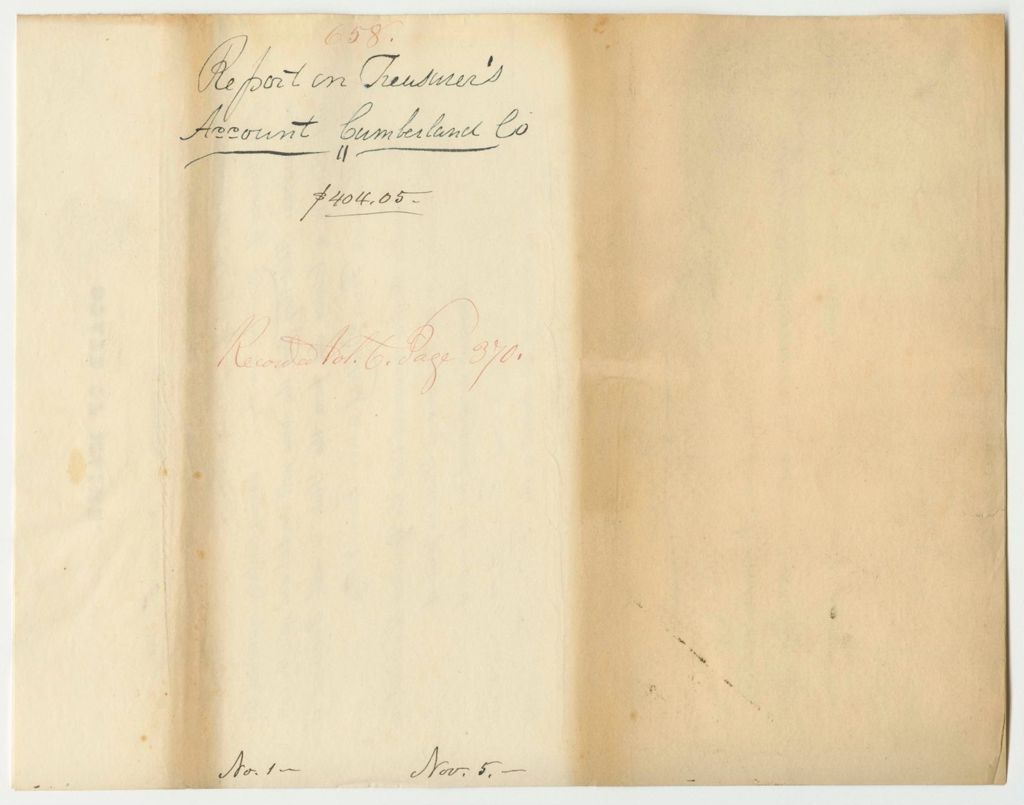 658.
Report on Treasurer's
Account Cumberland Co
$404.05-
Recorded Vol. 6. Page 370.
No. 1- Nov. 5.-